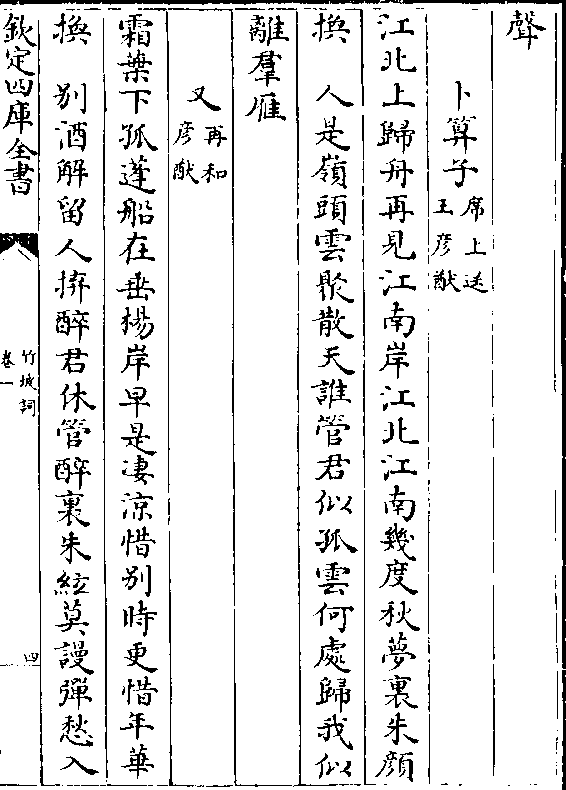 聲
卜算子席上送王彥猷
江北上歸舟再見江南岸江北江南幾度秋夢裏朱顔
換　人是嶺頭雲聚散天誰管君似孤雲何處歸我似
離羣雁
又再和彥猷
霜葉下孤蓬船在垂楊岸早是淒涼惜別時更惜年華
換　別酒解留人拚醉君休管醉裏朱絃莫謾彈愁入
欽定四庫全書
竹坡詞
卷一
四